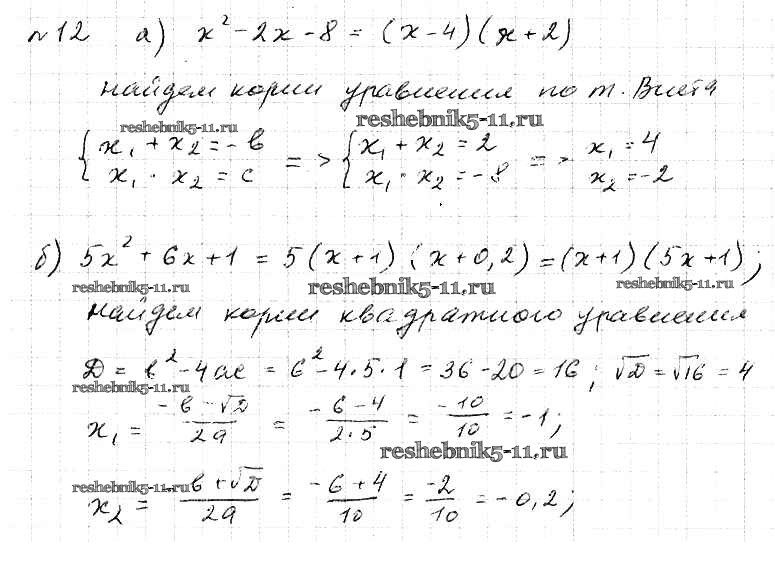 №12 а) x² - 2x - 8 = (x - 4)(x + 2)
найдем корни уравнения по т. Виета
reshebnik5-11.ru reshebnik5-11.ru
{ x₁ + x₂ = -b => { x₁ + x₂ = 2 => x₁ = 4
{ x₁ · x₂ = c { x₁ · x₂ = -8 x₂ = -2
б) 5x² + 6x + 1 = 5(x + 1)(x + 0,2) = (x + 1)(5x + 1);
reshebnik5-11.ru reshebnik5-11.ru reshebnik5-11.ru
найдем корни квадратного уравнения
D = b² - 4ac = 6² - 4·5·1 = 36 - 20 = 16; √D = √16 = 4
reshebnik5-11.ru
x₁ = (-b - √D)/2a = (-6 - 4)/(2·5) = -10/10 = -1;
reshebnik5-11.ru
reshebnik5-11.ru
x₂ = (-b + √D)/2a = (-6 + 4)/10 = -2/10 = -0,2;